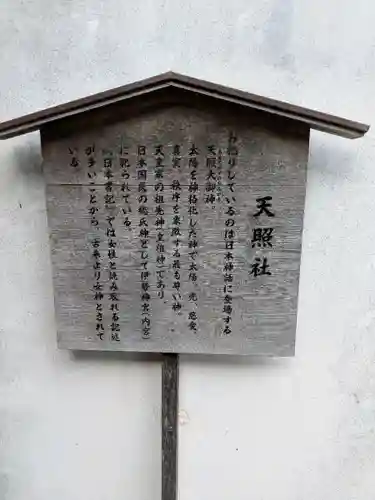 天照社
お祀りしているのは日本神話に登場する
天照大御神。
太陽を神格化した神で太陽、光、慈愛、
真実、秩序を象徴する最も尊い神。
天皇家の祖先神(皇祖神)であり、
日本国民の総氏神として伊勢神宮(内宮)
に祀られている。
『日本書記』では女性と読み取れる記述
が多いことから、古来より女神とされて
いる。